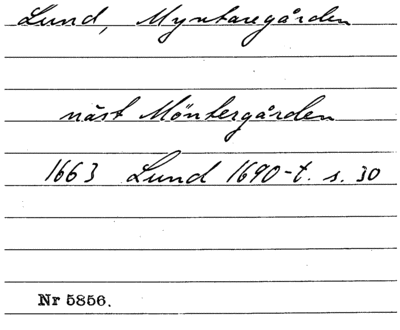 Lund, Myntaregården
näst Möntergården
1663 Lund 1690-t. s. 30
Nr 5856.